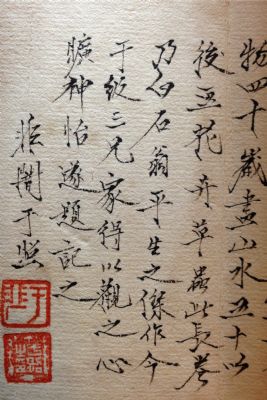 物四十歲畫山水五十以
後至花卉草蟲此長卷
乃白石翁平生之傑作今
于三兄家得以觀之心
曠神怡遂題記之
非闇于照